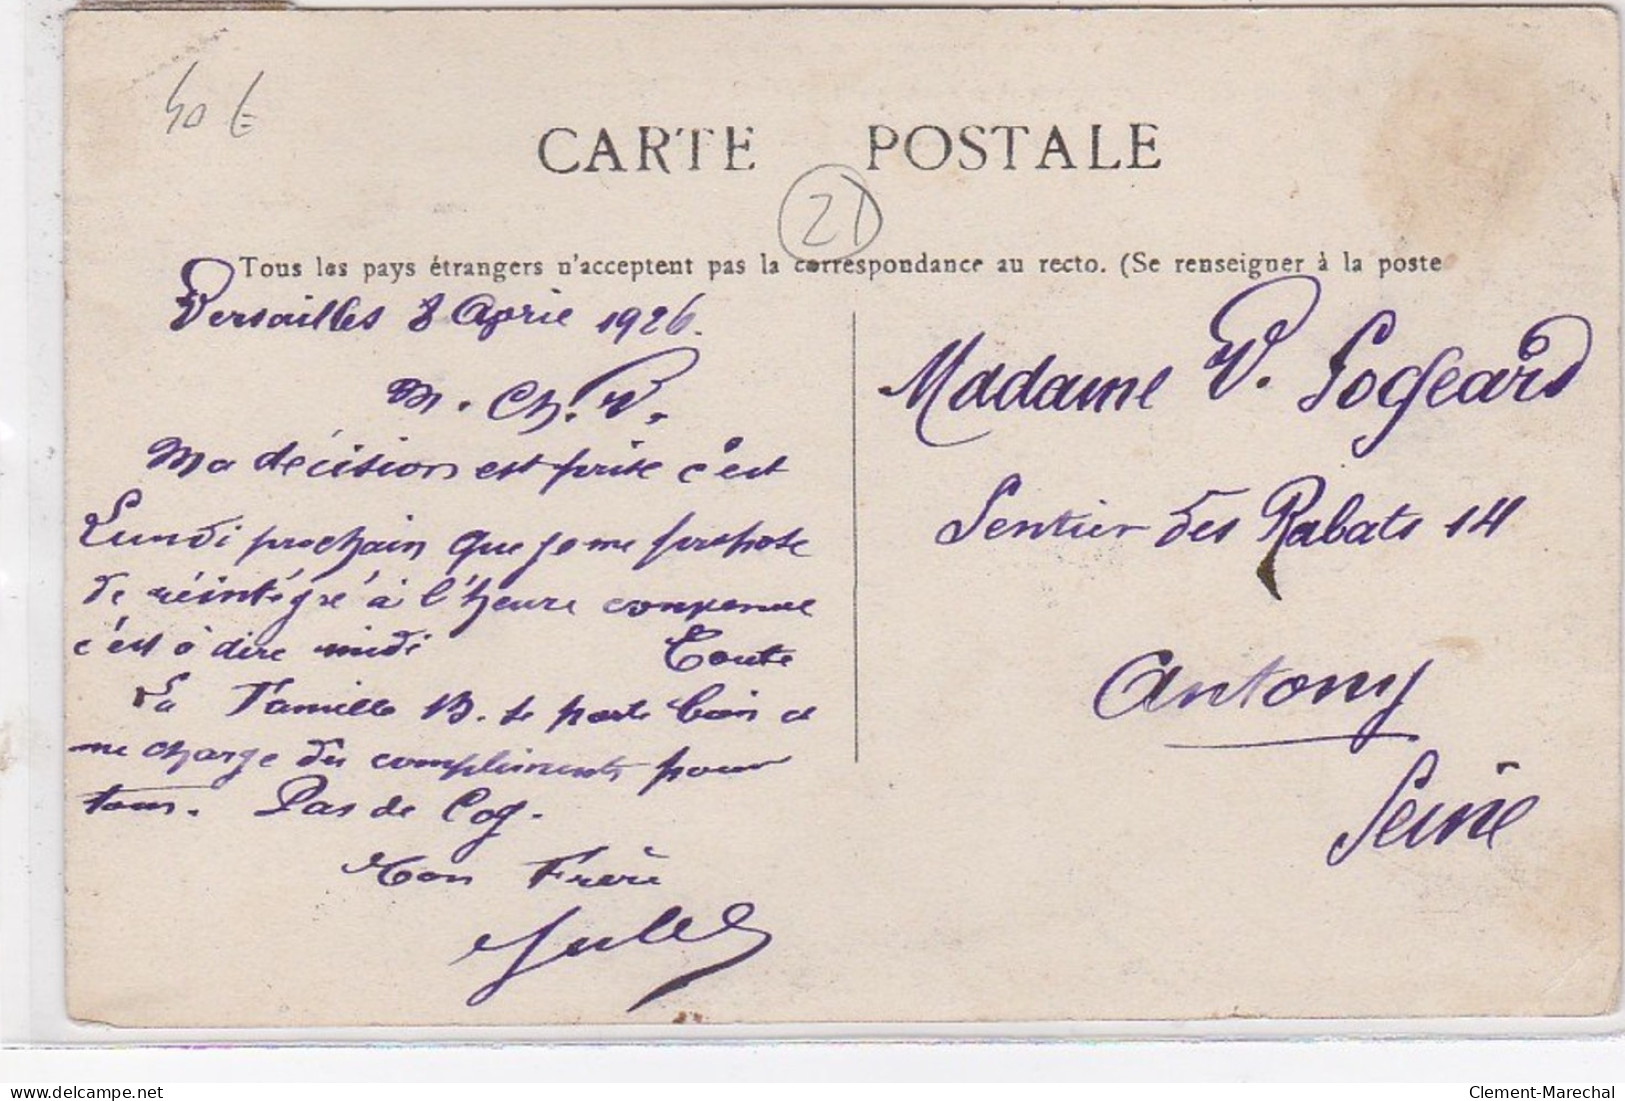 40 €
CARTE POSTALE
21
Tous les pays étrangers n'acceptent pas la correspondance au recto. (Se renseigner à la poste
Versailles 8 Aprie 1926.
M. Ch. V.
Ma décision est prise c'est
Lundi prochain que je me propose
de réintégré à l'heure convenue
c'est à dire midi Toute
La Famille B. se porte bien et
me charge du compliments pour
tous. Pas de Cog.
Ton Frère
Jules
Madame V. Pogeard
Sentier des Rabats 14
Antony
Seine
Clement-Marechal